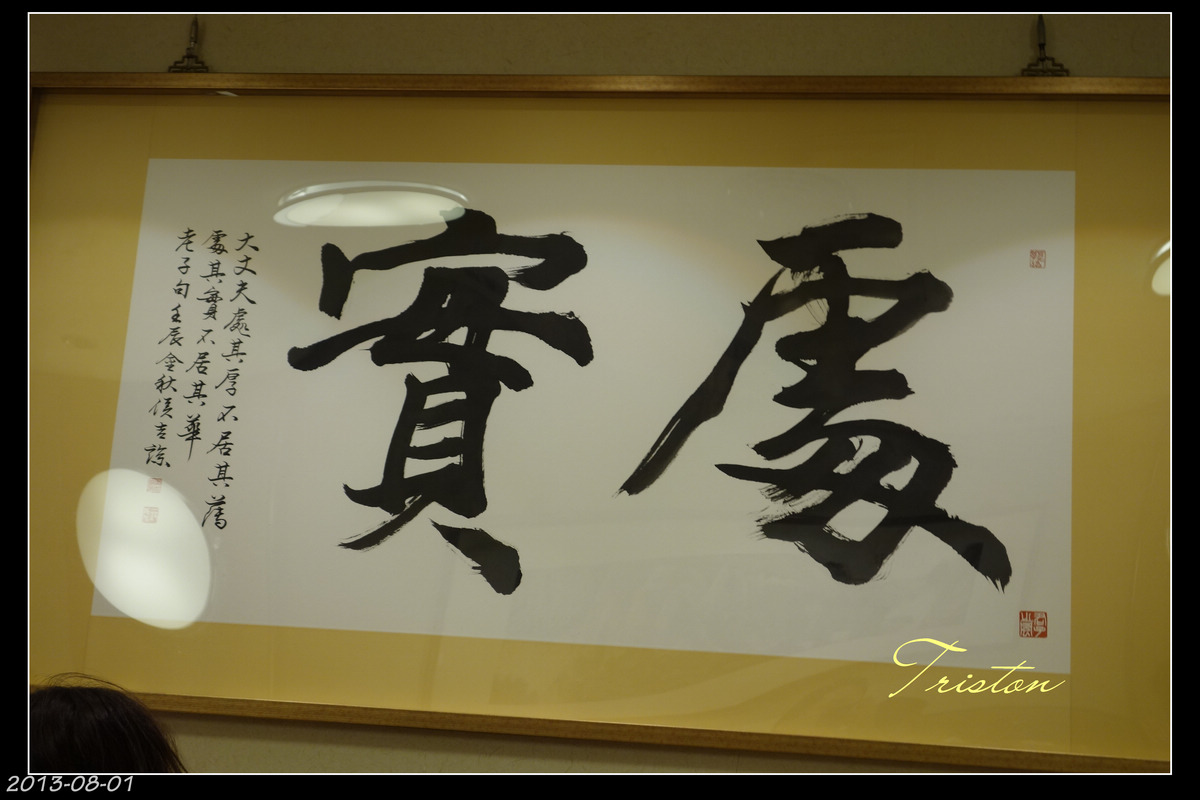 處實
大丈夫處其厚不居其薄
處其實不居其華
老子句壬辰金秋侯吉諒
Triston
2013-08-01